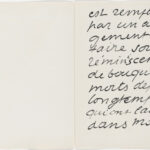 est rempl
par un a
gement
faire so
réminiscen
de bouqu
morts dep
longtemp
qui ont la
dans mo